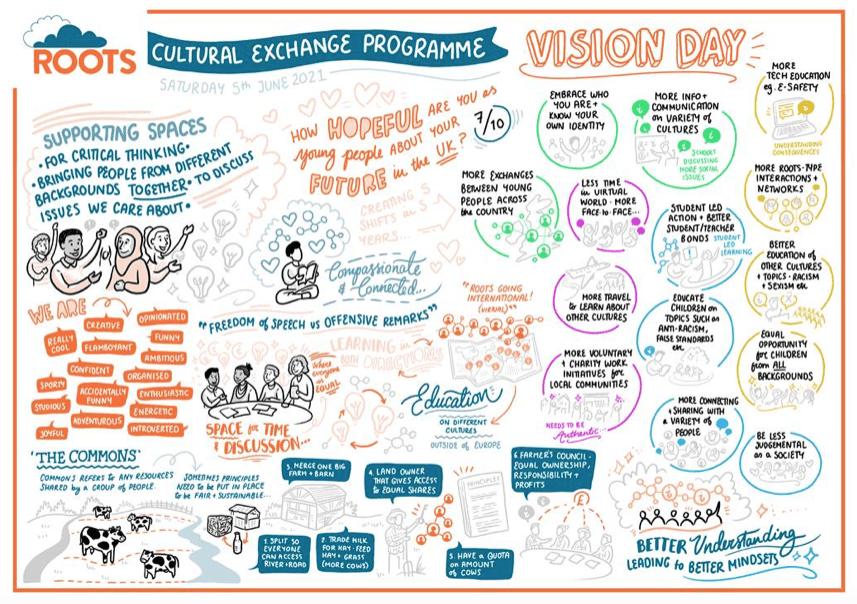 ROOTS
CULTURAL EXCHANGE PROGRAMME
SATURDAY 5th JUNE 2021
VISION DAY
SUPPORTING SPACES
• FOR CRITICAL THINKING •
• BRINGING PEOPLE FROM DIFFERENT
BACKGROUNDS TOGETHER • TO DISCUSS
ISSUES WE CARE ABOUT •
HOW HOPEFUL ARE YOU as
young people ABOUT YOUR
FUTURE in the UK?
7/10
CREATING
SHIFTS in 5
YEARS...
Compassionate
& Connected...
WE ARE
CREATIVE
OPINIONATED
REALLY
COOL
FLAMBOYANT
FUNNY
AMBITIOUS
CONFIDENT
ORGANISED
SPORTY
ACCIDENTALLY
FUNNY
ENTHUSIASTIC
STUDIOUS
ENERGETIC
ADVENTUROUS
JOYFUL
INTROVERTED
"FREEDOM OF SPEECH VS OFFENSIVE REMARKS"
LEARNING in
both DIRECTIONS
where
everyone
is
EQUAL
SPACE for TIME
& DISCUSSION...
"ROOTS GOING
INTERNATIONAL!
(VIRTUAL)"
Education
ON DIFFERENT
CULTURES
OUTSIDE OF EUROPE
EMBRACE WHO
YOU ARE +
KNOW YOUR
OWN IDENTITY
MORE INFO +
COMMUNICATION
ON VARIETY OF
CULTURES
SCHOOLS
DISCUSSING
MORE SOCIAL
ISSUES
MORE
TECH EDUCATION
eg. E-SAFETY
UNDERSTANDING
CONSEQUENCES
MORE EXCHANGES
BETWEEN YOUNG
PEOPLE ACROSS
the COUNTRY
LESS TIME
in VIRTUAL
WORLD - MORE
FACE-to-FACE...
STUDENT LED
ACTION + BETTER
STUDENT/TEACHER
BONDS
STUDENT
LED
LEARNING
MORE ROOTS-TYPE
INTERACTIONS +
NETWORKS
MORE TRAVEL
to LEARN ABOUT
OTHER CULTURES
EDUCATE
CHILDREN ON
TOPICS SUCH AS
ANTI-RACISM,
FALSE STANDARDS
etc
BETTER
EDUCATION of
OTHER CULTURES
+ TOPICS - RACISM
+ SEXISM etc
MORE VOLUNTARY
+ CHARITY WORK
INITIATIVES for
LOCAL COMMUNITIES
NEEDS TO BE
Authentic
EQUAL
OPPORTUNITY
for CHILDREN
from ALL
BACKGROUNDS
MORE CONNECTING
+ SHARING WITH
A VARIETY OF
PEOPLE
BE LESS
JUDGEMENTAL
as a SOCIETY
'THE COMMONS'
COMMONS REFERS to ANY RESOURCES
SHARED by a GROUP of PEOPLE.
SOMETIMES PRINCIPLES
NEED to be PUT IN PLACE
to be FAIR + SUSTAINABLE...
1. SPLIT SO
EVERYONE
CAN ACCESS
RIVER + ROAD
2. TRADE MILK
FOR HAY - FEED
HAY + GRASS
(MORE COWS)
3. MERGE ONE BIG
FARM + BARN
4. LAND OWNER
THAT GIVES ACCESS
to EQUAL SHARES
PRINCIPLES
5. HAVE a QUOTA
on AMOUNT
OF COWS
6. FARMER'S COUNCIL -
EQUAL OWNERSHIP,
RESPONSIBILITY +
PROFITS
£
BETTER Understanding
LEADING to BETTER MINDSETS